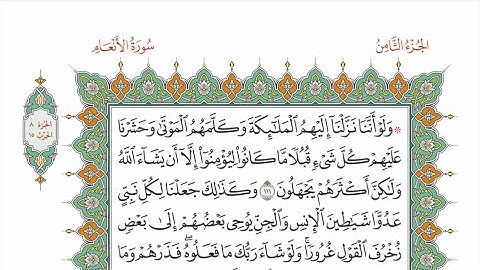 الجُزْءُ الثَّامِنُ
سُورَةُ الأَنْعَامِ
الجُزْءُ ٨
الحِزْبُ ١٥
۞ وَلَوْ أَنَّنَا نَزَّلْنَآ إِلَيْهِمُ ٱلْمَلَٰٓئِكَةَ وَكَلَّمَهُمُ ٱلْمَوْتَىٰ وَحَشَرْنَا
عَلَيْهِمْ كُلَّ شَىْءٍ قُبُلًا مَّا كَانُوا۟ لِيُؤْمِنُوٓا۟ إِلَّآ أَن يَشَآءَ ٱللَّهُ
وَلَٰكِنَّ أَكْثَرَهُمْ يَجْهَلُونَ ١١١ وَكَذَٰلِكَ جَعَلْنَا لِكُلِّ نَبِىٍّ
عَدُوًّا شَيَٰطِينَ ٱلْإِنسِ وَٱلْجِنِّ يُوحِى بَعْضُهُمْ إِلَىٰ بَعْضٍ
زُخْرُفَ ٱلْقَوْلِ غُرُورًا ۚ وَلَوْ شَآءَ رَبُّكَ مَا فَعَلُوهُ ۖ فَذَرْهُمْ وَمَا